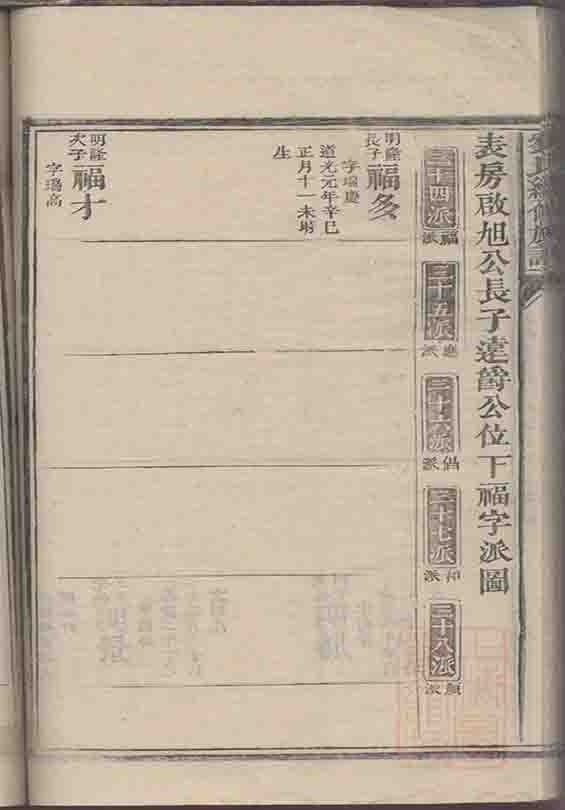 表房啟旭公長子達爵公位下福字派圖
三十四派
福派
三十五派
應派
三十六派
倡派
三十七派
和派
三十八派
顏派
明隆長子
福多
字瑞慶
道光元年辛巳
正月十一未時
生
明隆次子
福才
字瑞高